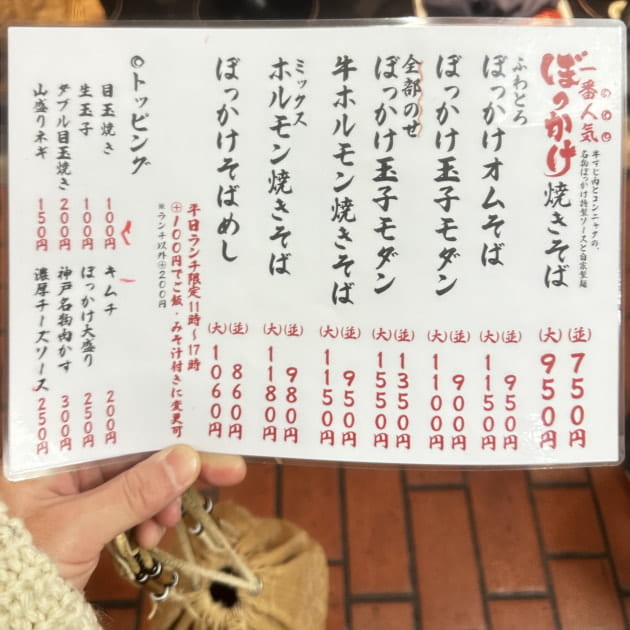 一番人気
ぼっかけ焼きそば
牛すじ肉とコンニャクの、
名物ぼっかけ特製ソースと自家製麺
(並) 750円
(大) 950円
ふわとろ
ぼっかけオムそば
(並) 950円
(大) 1150円
ぼっかけ玉子モダン
(並) 900円
(大) 1100円
全部のせ
ぼっかけ玉子モダン
(並) 1350円
(大) 1550円
牛ホルモン焼きそば
(並) 950円
(大) 1150円
ミックス
ホルモン焼きそば
(並) 980円
(大) 1180円
ぼっかけそばめし
(並) 860円
(大) 1060円
平日ランチ限定11時〜17時
⊕100円でご飯・みそ汁付きに変更可
※ランチ以外⊕200円
◎トッピング
目玉焼き 100円
生玉子 100円
ダブル目玉焼き 200円
山盛りネギ 150円
キムチ 200円
ぼっかけ大盛り 250円
神戸名物肉かす 300円
濃厚チーズソース 250円